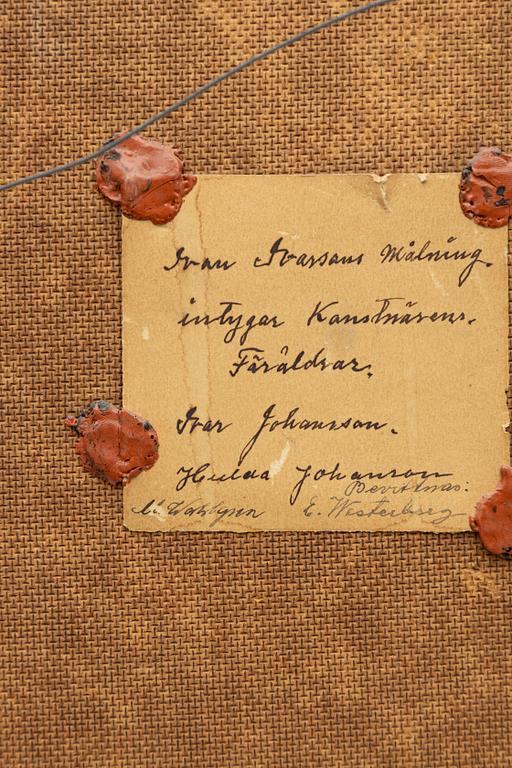 Ivan Ivarsons Målning.
intygar Konstnärens.
Föräldrar.
Ivar Johansson.
Hulda Johanson
Bevittnas:
E. Westerberg